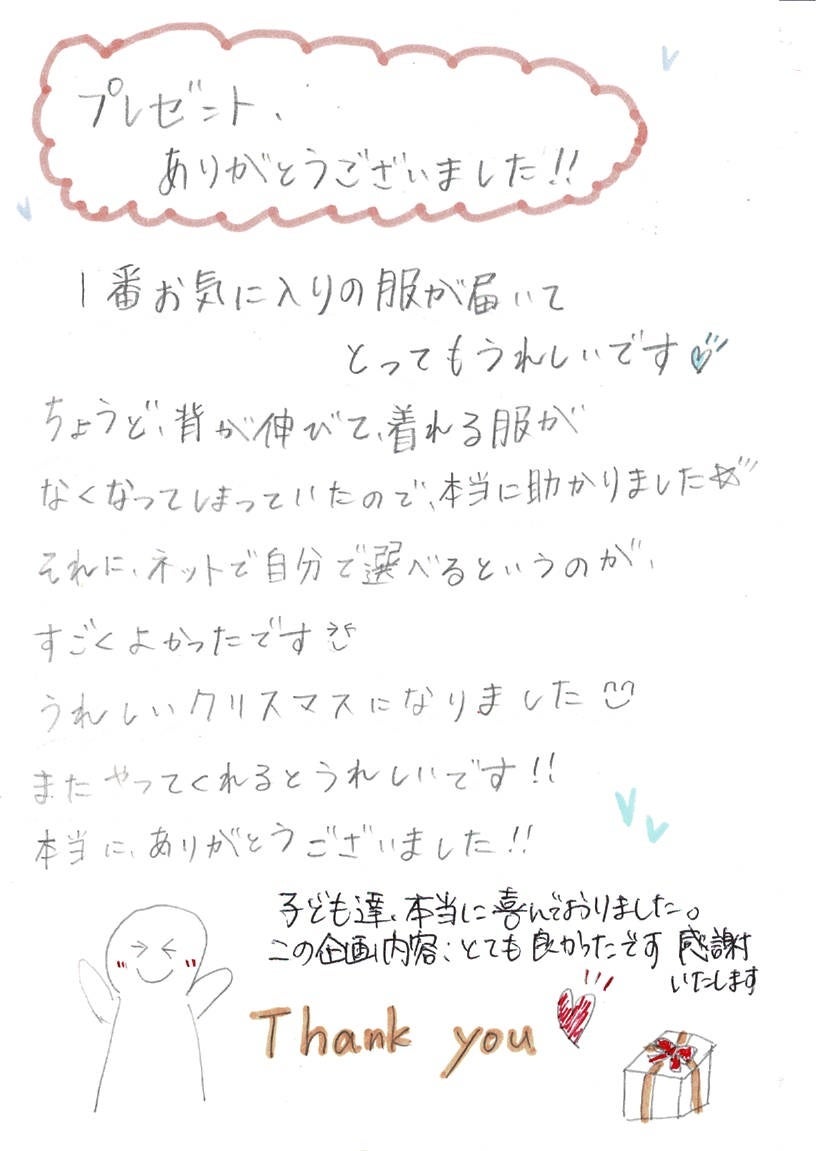 プレゼント、
ありがとうございました!!
1番お気に入りの服が届いて
とってもうれしいです
ちょうど、背が伸びて、着れる服が
なくなってしまっていたので、本当に助かりました
それに、ネットで自分で選べるというのが、
すごくよかったです
うれしいクリスマスになりました
またやってくれるとうれしいです!!
本当に、ありがとうございました!!
子ども達、本当に喜んでおりました。
この企画内容、とても良かったです 感謝
いたします
Thank you